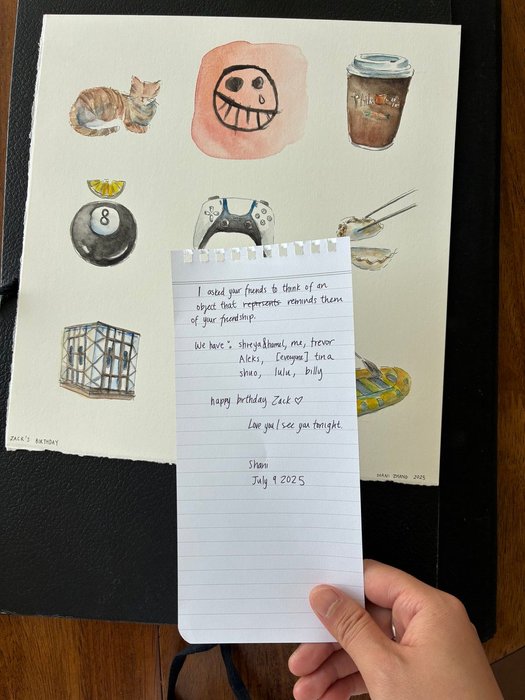 8
I asked your friends to think of an
object that represents reminds them
of your friendship.
We have: shreya&hamel, me, trevor
Aleks, [everyone] tina
shuo, lulu, billy
happy birthday Zack ♡
Love you / see you tonight.
Shani
July 9 2025
ZACK'S BIRTHDAY
SHANI ZHANG 2025